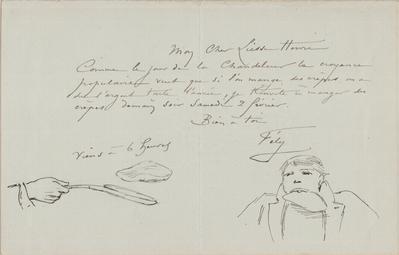 Mon Cher Liesse Henri
Comme le jour de la Chandeleur la croyance
populaire veut que si l'on mange des crêpes on a
de l'argent toute l'année, je t'invite à manger des
crêpes demain soir Samedi 2 février.
Bien à toi
Fély
Viens à 6 heures